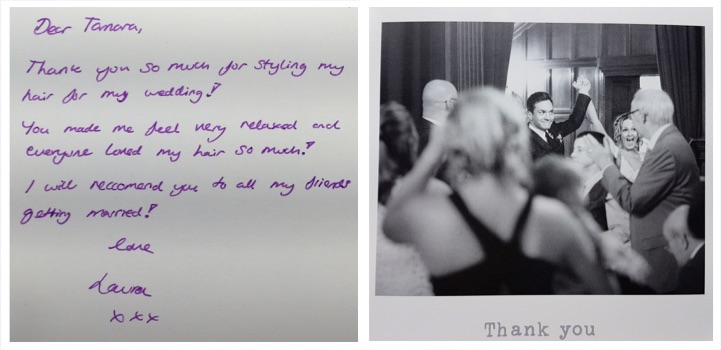 Dear Tamara,
Thank you so much for styling my
hair for my wedding!
You made me feel very relaxed and
everyone loved my hair so much!
I will reccomend you to all my friends
getting married!
love
Laura
xxx
Thank you